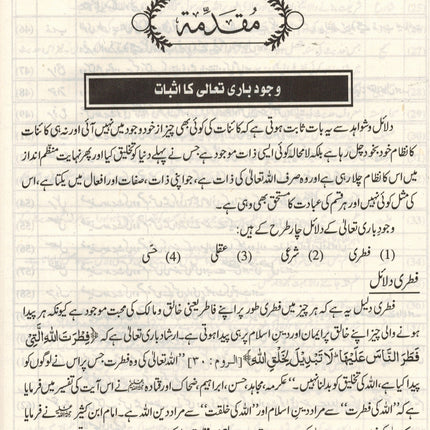 مُقَدِّمَة
وجود باری تعالیٰ کا اثبات
دلائل و شواہد سے یہ بات ثابت ہوتی ہے کہ کائنات کی کوئی بھی چیز از خود وجود میں نہیں آئی اور نہ ہی کائنات
کا نظام خود بخود چل رہا ہے بلکہ لامحالہ کوئی ایسی ذات موجود ہے جس نے پہلے دنیا کو تخلیق کیا اور پھر نہایت منظم انداز
میں اس کا نظام چلا رہی ہے اور وہ صرف اللہ تعالیٰ کی ذات ہے، جو اپنی ذات، صفات اور افعال میں یکتا ہے، اس
کی مثل کوئی نہیں اور ہر قسم کی عبادت کا مستحق بھی وہی ہے۔
وجود باری تعالیٰ کے دلائل چار طرح کے ہیں:
(1) فطری (2) شرعی (3) عقلی (4) حسّی
فطری دلائل
فطری دلیل یہ ہے کہ ہر چیز میں فطری طور پر اپنے فاطر یعنی خالق و مالک کی محبت موجود ہے کیونکہ ہر پیدا
ہونے والی چیز اپنے خالق پر ایمان اور دین اسلام پر ہی پیدا ہوتی ہے۔ ارشاد باری تعالیٰ ہے کہ ﴿فِطْرَتَ اللّٰهِ الَّتِیْ
فَطَرَ النَّاسَ عَلَیْهَا ؕ لَا تَبْدِیْلَ لِخَلْقِ اللّٰهِ﴾ [الروم : ۳۰] ”اللہ تعالیٰ کی وہ فطرت جس پر اس نے لوگوں کو
پیدا کیا ہے، اللہ کی تخلیق کو بدلنا نہیں۔“ عکرمہ، مجاہد، حسن، ابراہیم، ضحاک اور قتادہ نے اس آیت کی تفسیر میں فرمایا
ہے کہ ”اللہ کی فطرت“ سے مراد دین اسلام اور ”اللہ کی خلقت“ سے مراد دین اللہ ہے۔ امام ابن کثیر نے فرمایا